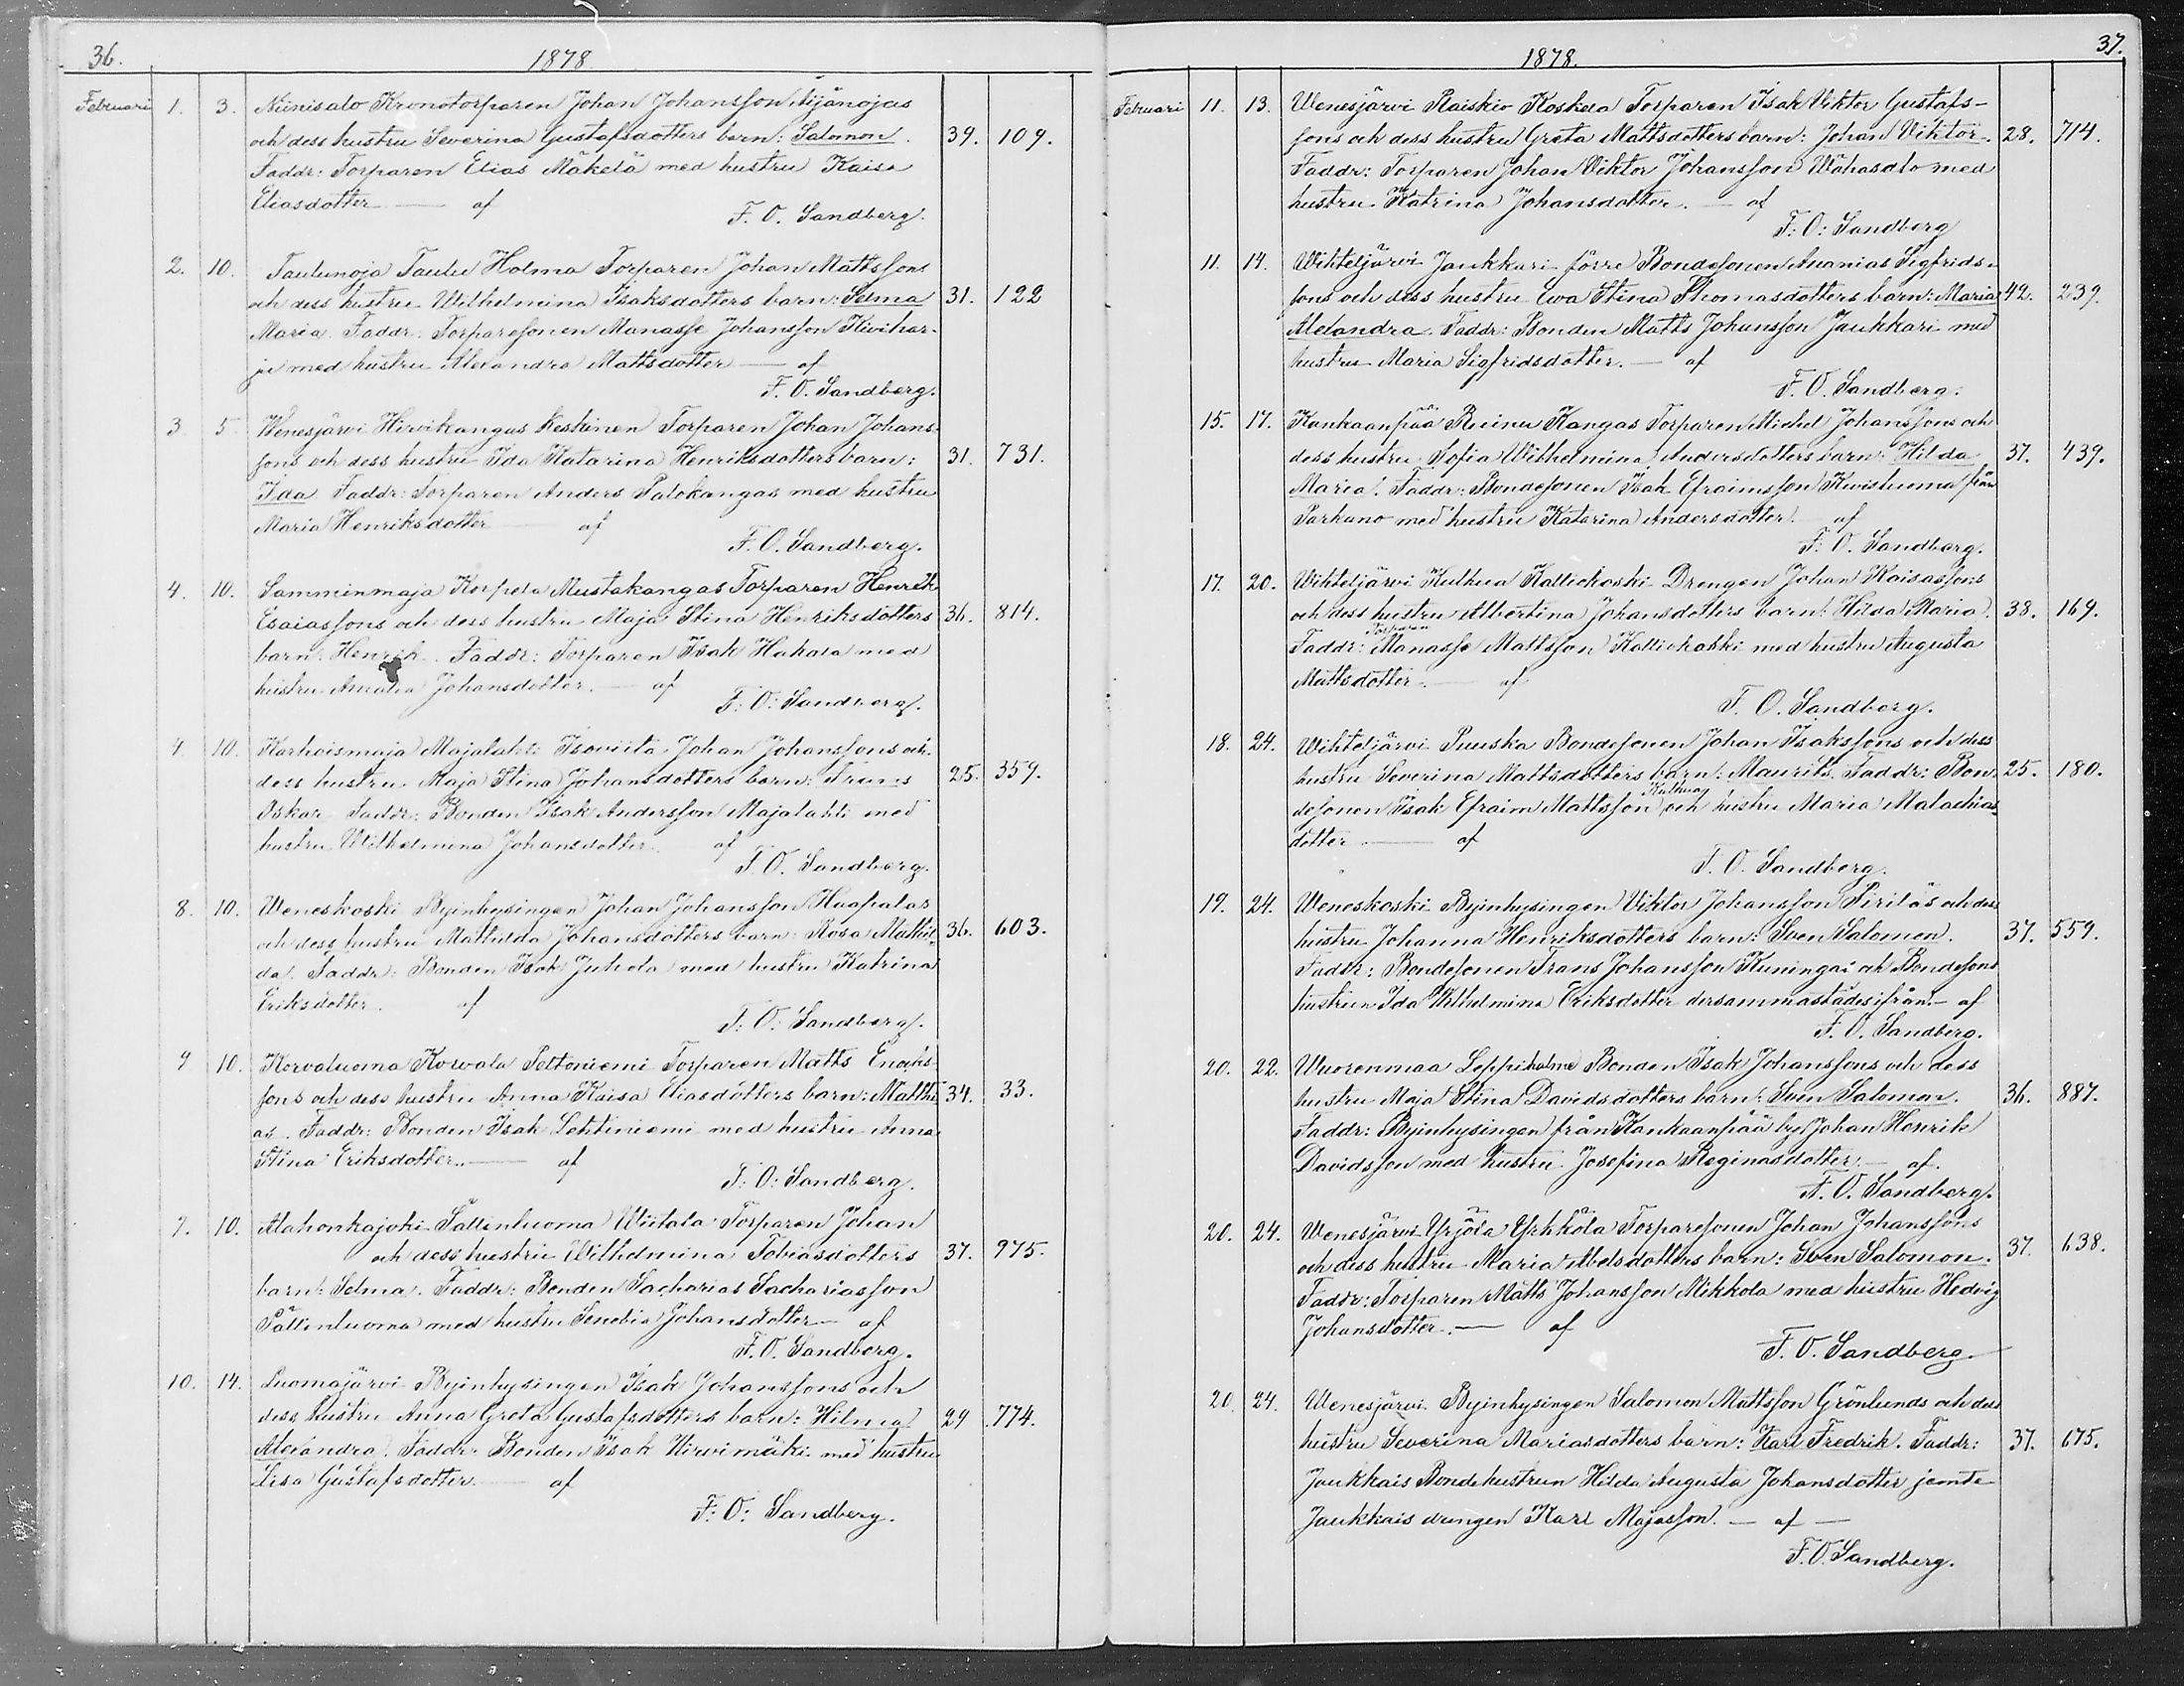 36.
1878
Februari 1. 3. Niinisalo Kronotorparen Johan Johansson Äijänojas
och dess hustru Severina Gustafsdotters barn: Salomon. 39. 109.
Faddr: Torparen Elias Mäkelä med hustru Kaisa
Eliasdotter — af
F. O. Sandberg.
2. 10. Taulunoja Taulu Holma Torparen Johan Mattssons
och dess hustru Wilhelmina Isaksdotters barn: Selma 31. 122
Maria. Faddr. Torparesonen Manasse Johansson Kivihar-
ju med hustru Alexandra Mattsdotter — af
F. O. Sandberg.
3 5 Wenesjärvi Hirvikangas Keskinen Torparen Johan Johans-
sons och dess hustru Ida Katarina Henriksdotters barn: 31. 731.
Ida Faddr: Torparen Anders Palokangas med hustru
Maria Henriksdotter af
F. O. Sandberg.
4. 10. Samminmaja Korpela Mustakangas Torparen Henrik
Esaiassons och dess hustru Maja Stina Henriksdotters 36. 814.
barn: Henrik. Faddr: Torparen Isak Hakala med
hustru Amalia Johansdotter. — af
F: O: Sandberg.
4 10. Karhoismaja Majalahti Isoviita Johan Johanssons och
dess hustru Maja Stina Johansdotters barn: Frans 25. 359.
Oskar Faddr: Bonden Isak Andersson Majalahti med
hustru Wilhelmina Johansdotter. af
F. O. Sandberg.
8. 10. Weneskoski Byinhysingen Johan Johansson Haapalas
och dess hustru Mathilda Johansdotters barn: Rosa Mathil- 36. 603.
da. Faddr: Bonden Isak Juhola med hustru Katrina
Eriksdotter. af
F: O: Sandberg.
9 10. Korvaluoma Korvala Peltoniemi Torparen Matts Enochs-
sons och dess hustru Anna Kaisa Eliasdotters barn: Matthi- 34. 33.
as. Faddr: Bonden Isak Lehtiniemi med hustru Anna
Stina Eriksdotter. — af
F: O: Sandberg.
9. 10. Alahonkajoki Pältinluoma Wiitala Torparen Johan
och dess hustru Wilhelmina Tobiasdotters 37. 975.
barn: Selma. Faddr: Bonden Sacharias Sachariasson
Pältinluoma med hustru Senobia Johansdotter — af
F. O. Sandberg.
10. 14. Luomajärvi Byinhysingen Isak Johanssons och
dess hustru Anna Greta Gustafsdotters barn: Hilma 29 774.
Alexandra. Faddr: Bonden Isak Hirvimäki med hustru
Lisa Gustafsdotter. af
F: O: Sandberg.
37.
1878.
Februari 11. 13. Wenesjärvi Raiskio Koskela Torparen Isak Viktor Gustafs-
sons och dess hustru Greta Mattsdotters barn: Johan Viktor. 28. 714.
Faddr: Torparen Johan Viktor Johansson Wähäsalo med
hustru Katrina Johansdotter. — af
F: O: Sandberg
11. 14. Wihteljärvi Jaukkari förre Bondesonen Ananias Sigfrids-
sons och dess hustru Ewa Stina Thomasdotters barn: Maria 42. 239.
Alexandra. Faddr: Bonden Matts Johansson Jaukkari med
hustru Maria Sigfridsdotter. — af
F. O. Sandberg.
15. 17. Kankaanpää Kangas Torparen Michel Johanssons och
dess hustru Sofia Wilhelmina Andersdotters barn: Hilda 37. 439.
Maria. Faddr: Bondesonen Isak Efraimsson Kiviluoma från
Parkano med hustru Katarina Andersdotter. af
F. O. Sandberg.
17. 20. Wihteljärvi Kulkua Kalliokoski Drengen Johan Kaisassons
och dess hustru Albertina Johansdotters barn: Hilda Maria. 38. 169.
Faddr: Torparen Manasse Mattsson Kalliokoski med hustru Augusta
Mattsdotter. af
F. O. Sandberg.
18. 24. Wihteljärvi Puuska Bondesonen Johan Isakssons och dess
hustru Severina Mattsdotters barn: Maurits. Faddr: Bon- 25. 180.
desonen Isak Efraim Mattsson Kulkua och hustru Maria Malachias-
dotter — af
F. O. Sandberg.
19. 24. Weneskoski Byinhysingen Viktor Johansson Piriläs och dess
hustru Johanna Henriksdotters barn: Sven Salomon. 37. 559.
Faddr: Bondesonen Frans Johansson Kuningas och Bondesons
hustrun Ida Wilhelmina Eriksdotter dersammastädesifrån — af
F. O. Sandberg.
20. 22. Wuorenmaa Leppiholme Bonden Isak Johanssons och dess
hustru Maja Stina Davidsdotters barn: Sven Salomon. 36. 887.
Faddr: Byinhysingen från Kankaanpää by Johan Henrik
Davidsson med hustru Josefina Reginasdotter. — af
F. O. Sandberg.
20. 24. Wenesjärvi Yrjölä Yrhkölä Torparesonen Johan Johanssons
och dess hustru Maria Abelsdotters barn: Sven Salomon. 37. 638.
Faddr: Torparen Matts Johansson Mikkola med hustru Hedvig
Johansdotter. — af
F. O. Sandberg
20. 24. Wenesjärvi Byinhysingen Salomon Mattsson Grönlunds och dess
hustru Severina Mariasdotters barn: Karl Fredrik. Faddr: 37. 675.
Jaukkais Bondehustrun Hilda Augusta Johansdotter jemte
Jaukkais drengen Karl Majasson. — af —
F. O. Sandberg.